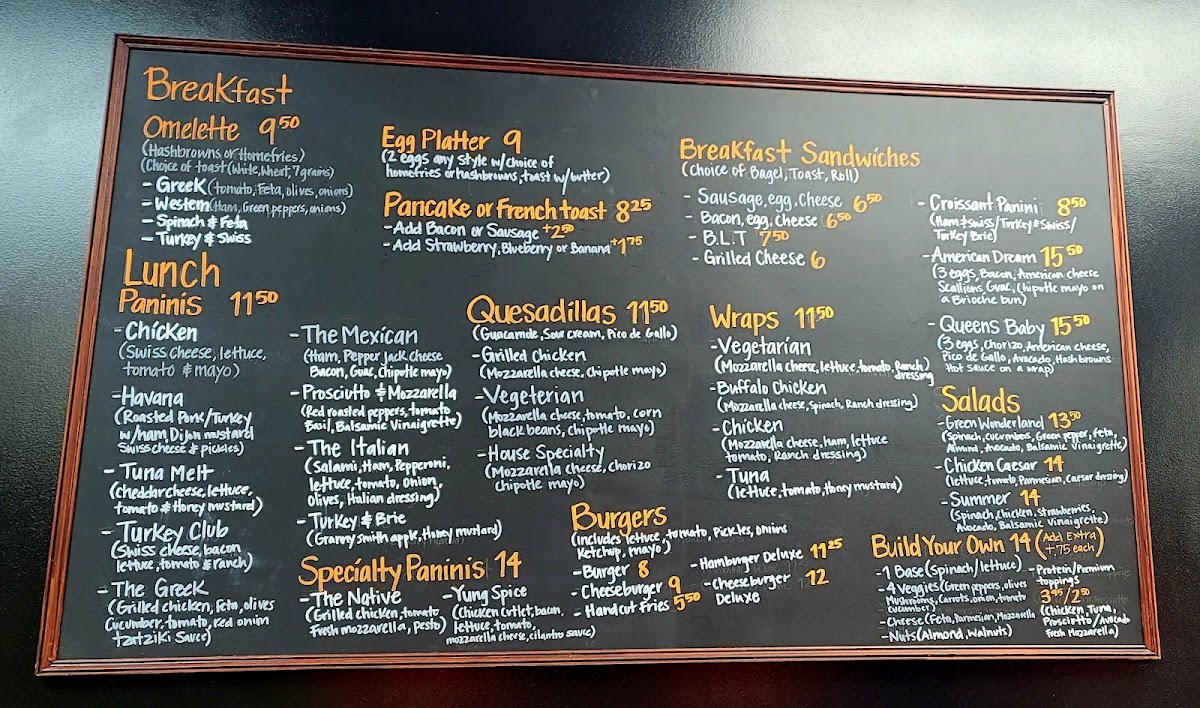 Breakfast
Omelette 9⁵⁰
(Hashbrowns or Homefries)
(Choice of toast (White, Wheat, 7 grains)
- Greek (tomato, Feta, olives, onions)
- Western (Ham, Green peppers, onions)
- Spinach & Feta
- Turkey & Swiss
Egg Platter 9
(2 eggs any style w/ choice of
homefries or hashbrowns, toast w/ butter)
Pancake or French toast 8²⁵
- Add Bacon or Sausage +2⁵⁰
- Add Strawberry, Blueberry or Banana +1⁷⁵
Breakfast Sandwiches
(Choice of Bagel, Toast, Roll)
- Sausage, egg, Cheese 6⁵⁰
- Bacon, egg, cheese 6⁵⁰
- B.L.T 7⁵⁰
- Grilled Cheese 6
- Croissant Panini 8⁵⁰
(Ham & Swiss/Turkey & Swiss/
Turkey Brie)
- American Dream 15⁵⁰
(3 eggs, Bacon, American cheese
Scallions, Guac, Chipotle mayo on
a Brioche bun)
- Queens Baby 15⁵⁰
(3 eggs, Chorizo, American cheese,
Pico de Gallo, Avocado, Hash browns
Hot sauce on a wrap)
Lunch
Paninis 11⁵⁰
- Chicken
(Swiss cheese, lettuce,
tomato & mayo)
- Havana
(Roasted Pork/Turkey
w/ham, Dijon mustard
Swiss cheese & pickles)
- Tuna Melt
(cheddar cheese, lettuce,
tomato & Honey mustard)
- Turkey Club
(Swiss cheese, bacon
lettuce, tomato & ranch)
- The Greek
(Grilled chicken, Feta, olives
Cucumber, tomato, red onion
tzatziki Sauce)
- The Mexican
(Ham, Pepper Jack cheese
Bacon, Guac, Chipotle mayo)
- Prosciutto & Mozzarella
(Red roasted peppers, tomato
Basil, Balsamic Vinaigrette)
- The Italian
(Salami, Ham, Pepperoni,
lettuce, tomato, onion,
olives, Italian dressing)
- Turkey & Brie
(Granny smith apple, Honey mustard)
Specialty Paninis 14
- The Native
(Grilled chicken, tomato
Fresh mozzarella, pesto)
- Yung Spice
(Chicken Cutlet, bacon,
lettuce, tomato,
mozzarella cheese, cilantro sauce)
Quesadillas 11⁵⁰
(Guacamole, Sour cream, Pico de Gallo)
- Grilled Chicken
(Mozzarella cheese, Chipotle mayo)
- Vegeterian
(Mozzarella cheese, tomato, corn
black beans, chipotle mayo)
- House Specialty
(Mozzarella cheese, chorizo
chipotle mayo)
Burgers
(includes lettuce, tomato, Pickles, onions
Ketchup, mayo)
- Burger 8
- Cheeseburger 9
- Handcut Fries 5⁵⁰
- Hamburger Deluxe 11²⁵
- Cheeseburger 12
Deluxe
Wraps 11⁵⁰
- Vegetarian
(Mozzarella cheese, lettuce, tomato, Ranch)
dressing
- Buffalo Chicken
(Mozzarella cheese, Spinach, Ranch dressing)
- Chicken
(Mozzarella cheese, ham, lettuce
tomato, Ranch dressing)
- Tuna
(lettuce, tomato, Honey mustard)
Salads
- Green Wonderland 13⁵⁰
(Spinach, cucumbers, Green pepper, feta,
Almond, Avocado, Balsamic Vinaigrette)
- Chicken Caesar 14
(lettuce, tomato, Parmesan, Caesar dressing)
- Summer 14
(Spinach, chicken, Strawberries,
Avocado, Balsamic Vinaigrette)
Build Your Own 14 (Add Extra
+.75 each)
- 1 Base (Spinach/lettuce)
- 4 Veggies (Green peppers, olives
Mushrooms, Carrots, onion, tomato
Cucumber)
- Cheese (Feta, Parmesan, Mozzarella
- Nuts (Almond, Walnuts)
- Protein/Premium
toppings
3⁴⁵/2⁵⁰
(Chicken, Tuna,
Prosciutto/Avocado
Fresh Mozzarella)